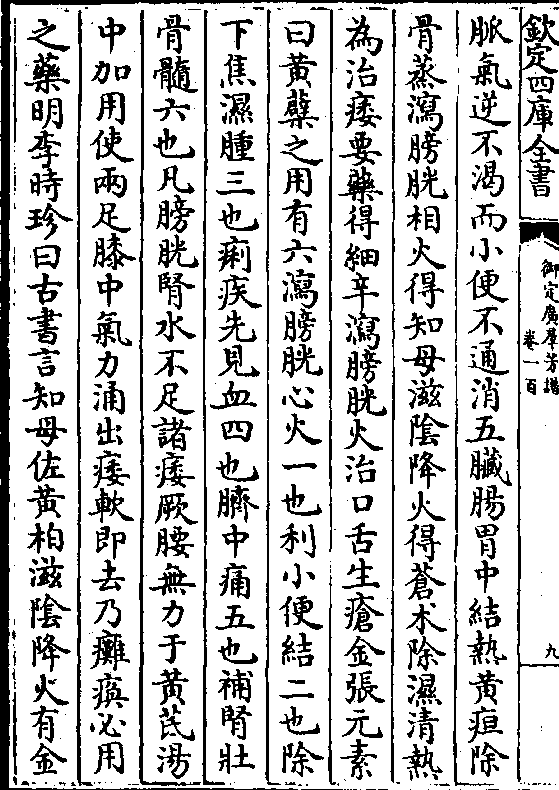 欽定四庫全書
御定廣羣芳譜
卷一百
九
脈氣逆不渴而小便不通消五臟腸胃中結熱黃疸除
骨蒸瀉膀胱相火得知母滋陰降火得蒼术除濕清熱
為治痿要藥得細辛瀉膀胱火治口舌生瘡金張元素
曰黃蘗之用有六瀉膀胱心火一也利小便結二也除
下焦濕腫三也痢疾先見血四也臍中痛五也補腎壯
骨髓六也凡膀胱腎水不足諸痿厥腰無力于黃芪湯
中加用使兩足膝中氣力涌出痿軟即去乃癱瘓必用
之藥明李時珍曰古書言知母佐黃柏滋陰降火有金